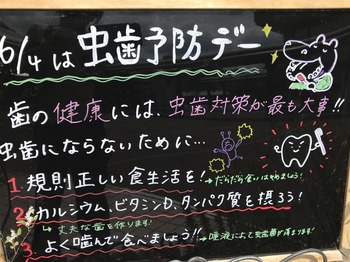 6/4は虫歯予防デー
歯の健康には、虫歯対策が最も大事!!
虫歯にならないために…
1. 規則正しい食生活を! →だらだら食いはやめましょう!
2. カルシウム、ビタミンD、タンパク質を摂ろう!
→丈夫な歯を作ります!
3. よく噛んで食べましょう!! →唾液によって虫歯菌が減ります!